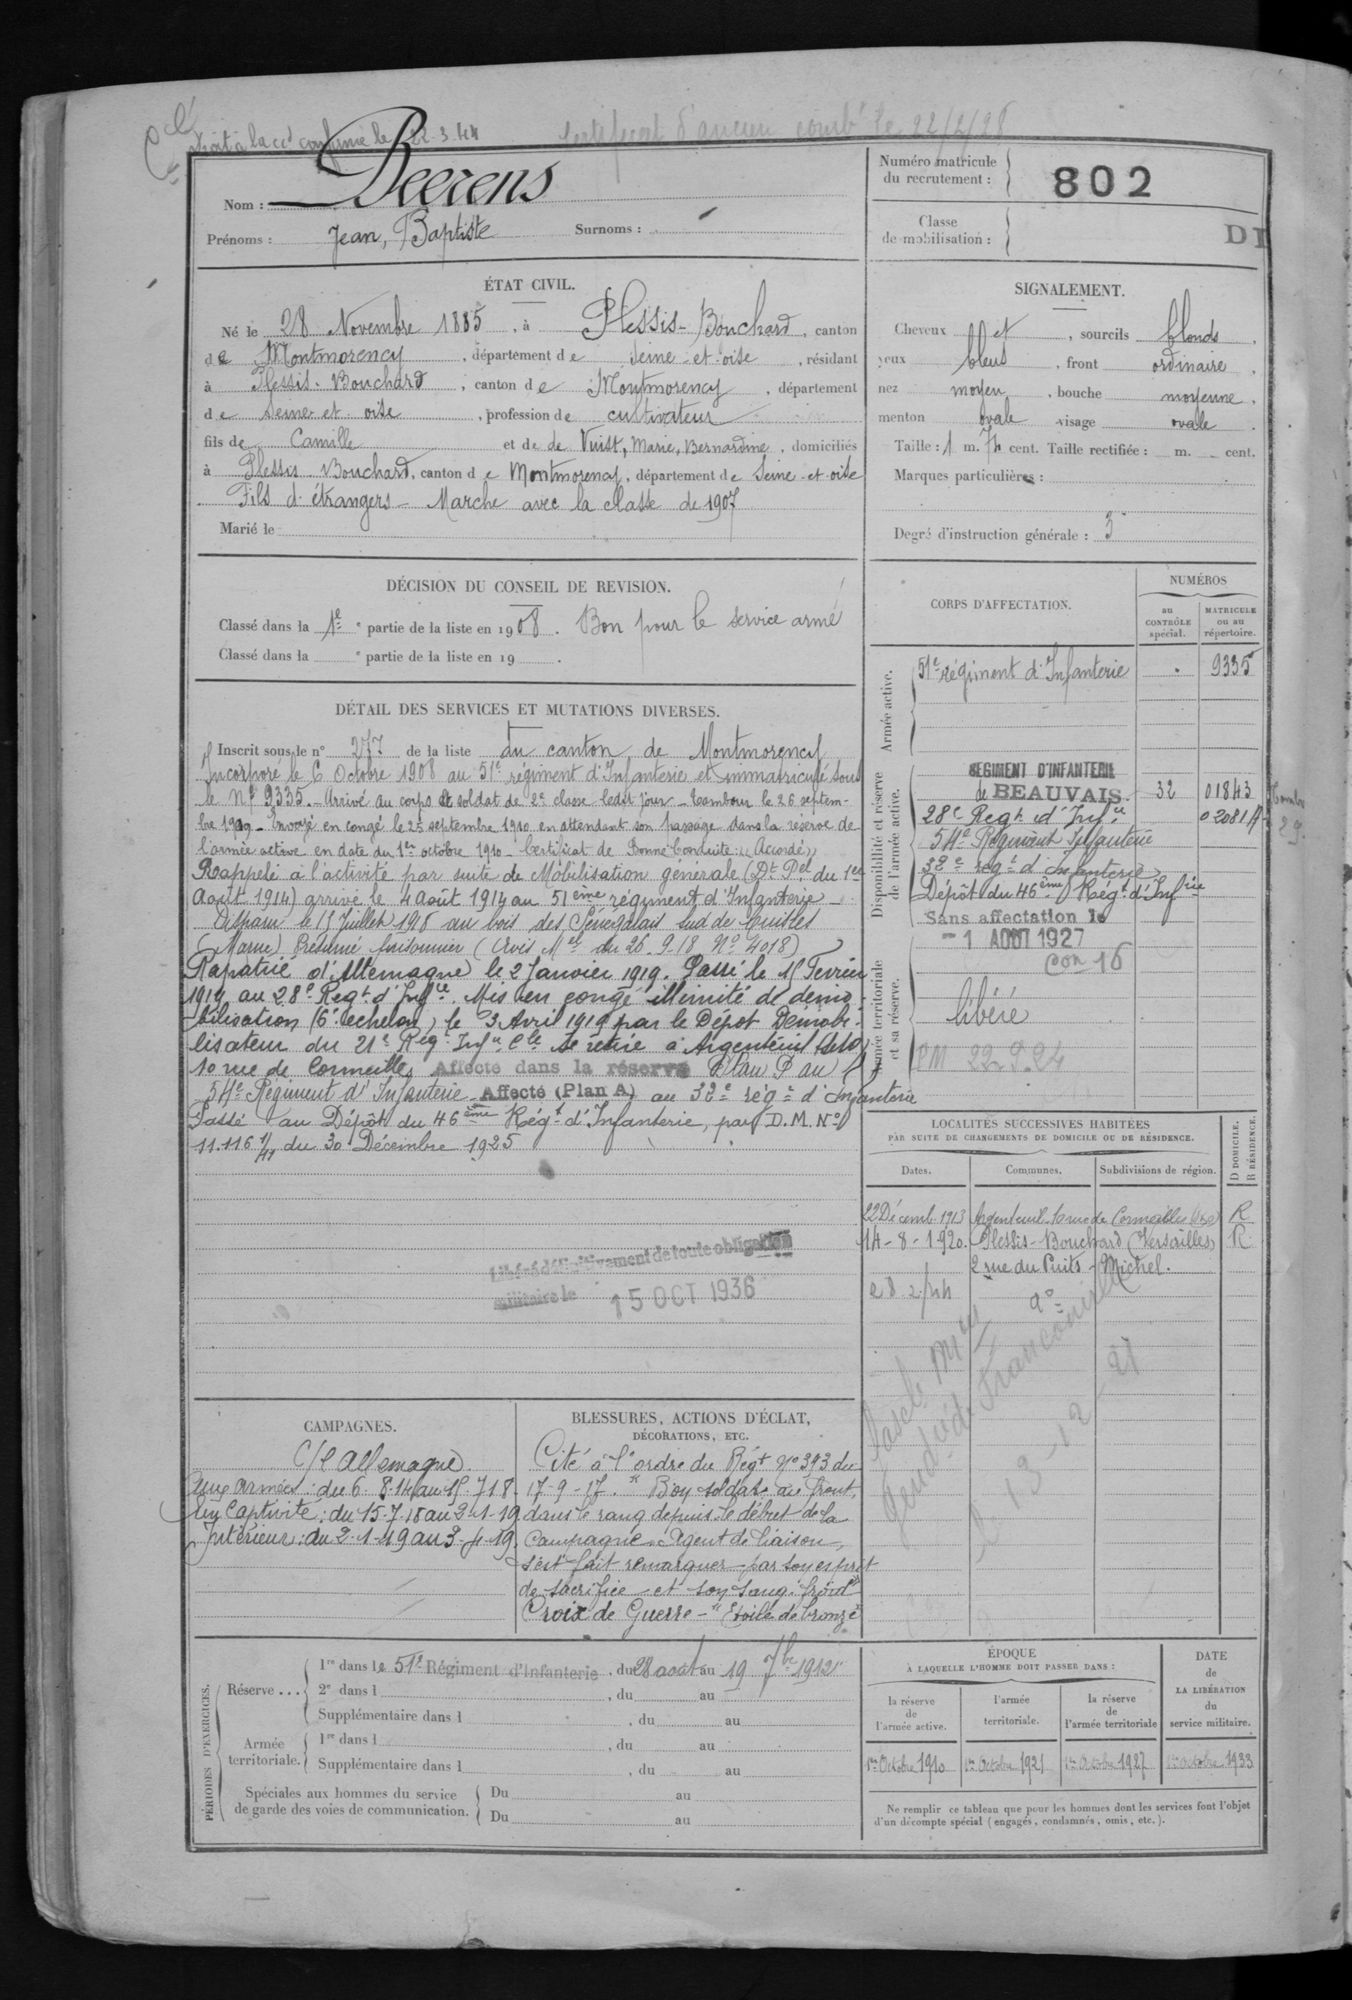 droit à la cte confirmé le 22.3.44
Certificat d'ancien combt le 22/2/28
Nom : Beerens
Prénoms : Jean, Baptiste Surnoms :
Numéro matricule du recrutement : 802
Classe de mobilisation :
DI
ÉTAT CIVIL.
Né le 28 Novembre 1885, à Plessis-Bouchard, canton
de Montmorency, département de Seine-et-oise, résidant
à Plessis-Bouchard, canton de Montmorency, département
de Seine et oise, profession de cultivateur
fils de Camille et de de Vuist, Marie, Bernardine, domiciliés
à Plessis Bouchard, canton de Montmorency, département de Seine-et-oise
Fils d'étrangers - Marche avec la classe de 1907
Marié le
SIGNALEMENT.
Cheveux et, sourcils blonds,
yeux bleus, front ordinaire,
nez moyen, bouche moyenne,
menton ovale visage ovale.
Taille : 1 m. 74 cent. Taille rectifiée : m. cent.
Marques particulières :
Degré d'instruction générale : 3
DÉCISION DU CONSEIL DE REVISION.
Classé dans la 1re e partie de la liste en 1908. Bon pour le service armé
Classé dans la e partie de la liste en 19 .
DÉTAIL DES SERVICES ET MUTATIONS DIVERSES.
Inscrit sous le n° 277 de la liste du canton de Montmorency
Incorporé le 6 Octobre 1908 au 51e régiment d'Infanterie et immatriculé sous
le N° 9335. Arrivé au corps et soldat de 2e classe ledit jour - Tambour le 26 septem-
bre 1909 - Envoyé en congé le 25 septembre 1910 en attendant son passage dans la réserve de
l'armée active en date du 1er octobre 1910 - Certificat de Bonne Conduite "Accordé"
Rappelé à l'activité par suite de Mobilisation générale (Dt Pel du 1er
Août 1914) arrivé le 4 août 1914 au 51ème régiment d'Infanterie
Disparu le 15 Juillet 1918 au bois des Sénégalais sud de Cuisles
(Marne) Présumé prisonnier (Avis Mel du 26.9.18 N° 4018)
Rapatrié d'Allemagne le 2 Janvier 1919. Passé le 15 Fevrier
1919 au 28e Regt d'Infie. Mis en congé illimité de démo-
bilisation (6e echelon) le 3 Avril 1919 par le Dépot Démobi-
lisateur du 21e Reg. Infie Cle se retire à Argenteuil (S&O)
10 rue de Cormeilles Affecté dans la réserve Plan P au
54e Régiment d'Infanterie - Affecté (Plan A) au 32e régt d'Infanterie
Passé au Dépôt du 46ème Régt d'Infanterie, par D.M. N°
11.116 1/11 du 30 Décembre 1925
Libéré définitivement de toute obligation
militaire le 15 OCT 1936
CORPS D'AFFECTATION.
NUMÉROS
au CONTRÔLE spécial.
MATRICULE ou au répertoire.
Armée active.
51e régiment d'Infanterie 9335
Disponibilité et réserve de l'armée active.
REGIMENT D'INFANTERIE
de BEAUVAIS. 32 01843
28e Regt d'Infie 02081
54e Régiment Infanterie
32e régt d'infanterie
Dépôt du 46ème Régt d'Infrie
Sans affectation le
-1 AOUT 1927
Con 16
Armée territoriale et sa réserve.
libéré
PM 22-9-24
LOCALITÉS SUCCESSIVES HABITÉES
PAR SUITE DE CHANGEMENTS DE DOMICILE OU DE RÉSIDENCE.
Dates. Communes. Subdivisions de région. D DOMICILE. R RÉSIDENCE.
22 Décemb. 1913 Argenteuil 10 rue de Cormeilles R
14-8-1920. Plessis-Bouchard (Versailles) R
2 rue du Puits-Michel.
28.2/44 do
gendie de Franconville
le 13-12-21
CAMPAGNES.
C/e Allemagne
Aux armées : du 6.8.14 au 15.7.18
En Captivité : du 15-7-18 au 2-1-19
Intérieur : du 2-1-19 au 3-4-19.
BLESSURES, ACTIONS D'ÉCLAT,
DÉCORATIONS, ETC.
Cité à l'ordre du Régt N° 393 du
17-9-17. "Bon soldat au front,
dans le rang depuis le début de la
campagne. Agent de liaison,
s'est fait remarquer par son esprit
de sacrifice et son sang-froid"
Croix de Guerre - "Etoile de bronze"
PÉRIODES D'EXERCICES.
Réserve...
1re dans le 51e Régiment d'Infanterie, du 28 août au 19 7bre 1912
2e dans l , du au
Supplémentaire dans l , du au
Armée territoriale.
1re dans l , du au
Supplémentaire dans l , du au
Spéciales aux hommes du service de garde des voies de communication.
Du au
Du au
ÉPOQUE
À LAQUELLE L'HOMME DOIT PASSER DANS :
la réserve de l'armée active.
l'armée territoriale.
la réserve de l'armée territoriale
DATE de LA LIBÉRATION du service militaire.
1er Octobre 1910 1er Octobre 1921 1er Octobre 1927 1er octobre 1933
Ne remplir ce tableau que pour les hommes dont les services font l'objet
d'un décompte spécial (engagés, condamnés, omis, etc.).